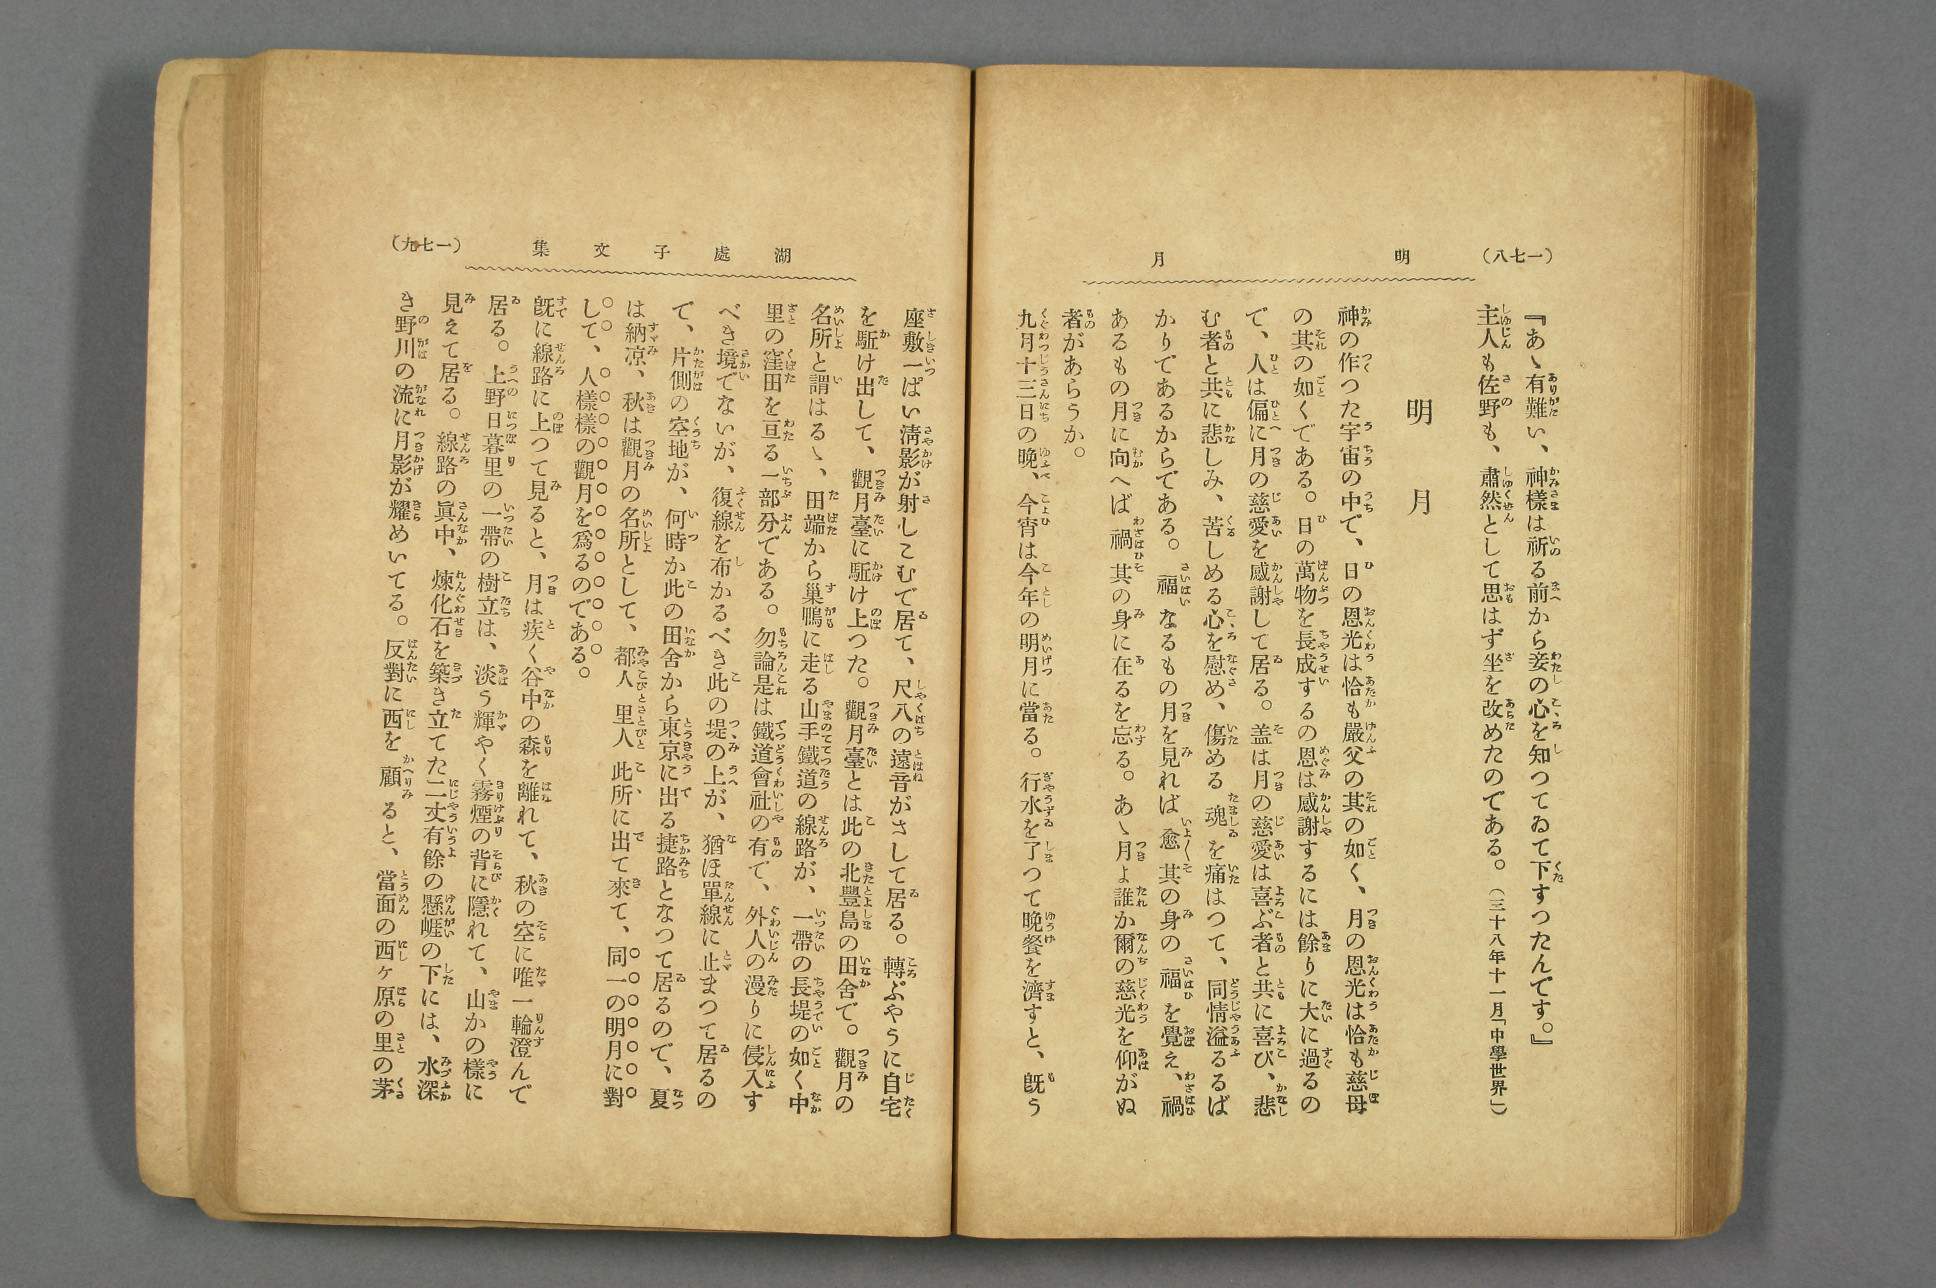 （一七八）
明月
『あゝ有難い、神樣は祈る前から妾の心を知つてゐて下すつたんです。』
主人も佐野も、肅然として思はず坐を改めたのである。（三十八年十一月「中學世界」）
明月
神の作つた宇宙の中で、日の恩光は恰も嚴父の其の如く、月の恩光は恰も慈母
の其の如くである。日の萬物を長成するの恩は感謝するには餘りに大に過るの
で、人は偏に月の慈愛を感謝して居る。盖は月の慈愛は喜ぶ者と共に喜び、悲
む者と共に悲しみ、苦しめる心を慰め、傷める魂を痛はつて、同情溢るるば
かりであるからである。福なるもの月を見れば愈其の身の福を覺え、禍
あるもの月に向へば禍其の身に在るを忘る。あゝ月よ誰か爾の慈光を仰がぬ
者があらうか。
九月十三日の晩、今宵は今年の明月に當る。行水を了つて晩餐を濟すと、既う
（一七九）
湖處子文集
座敷一ぱい淸影が射しこむで居て、尺八の遠音がさして居る。轉ぶやうに自宅
を駈け出して、觀月臺に駈け上つた。觀月臺とは此の北豐島の田舍で。觀月の
名所と謂はるゝ、田端から巢鴨に走る山手鐵道の線路が、一帶の長堤の如く中
里の窪田を亘る一部分である。勿論是は鐵道會社の有で、外人の漫りに侵入す
べき境でないが、復線を布かるべき此の堤の上が、猶ほ單線に止まつて居るの
で、片側の空地が、何時か此の田舍から東京に出る捷路となつて居るので、夏
は納凉、秋は觀月の名所として、都人里人此所に出て來て、同一の明月に對
して、人樣樣の觀月を爲るのである。
既に線路に上つて見ると、月は疾く谷中の森を離れて、秋の空に唯一輪澄んで
居る。上野日暮里の一帶の樹立は、淡う輝やく霧煙の背に隱れて、山かの樣に
見えて居る。線路の眞中、煉化石を築き立てた二丈有餘の懸崕の下には、水深
き野川の流に月影が耀めいてる。反對に西を顧ると、當面の西ヶ原の里の茅